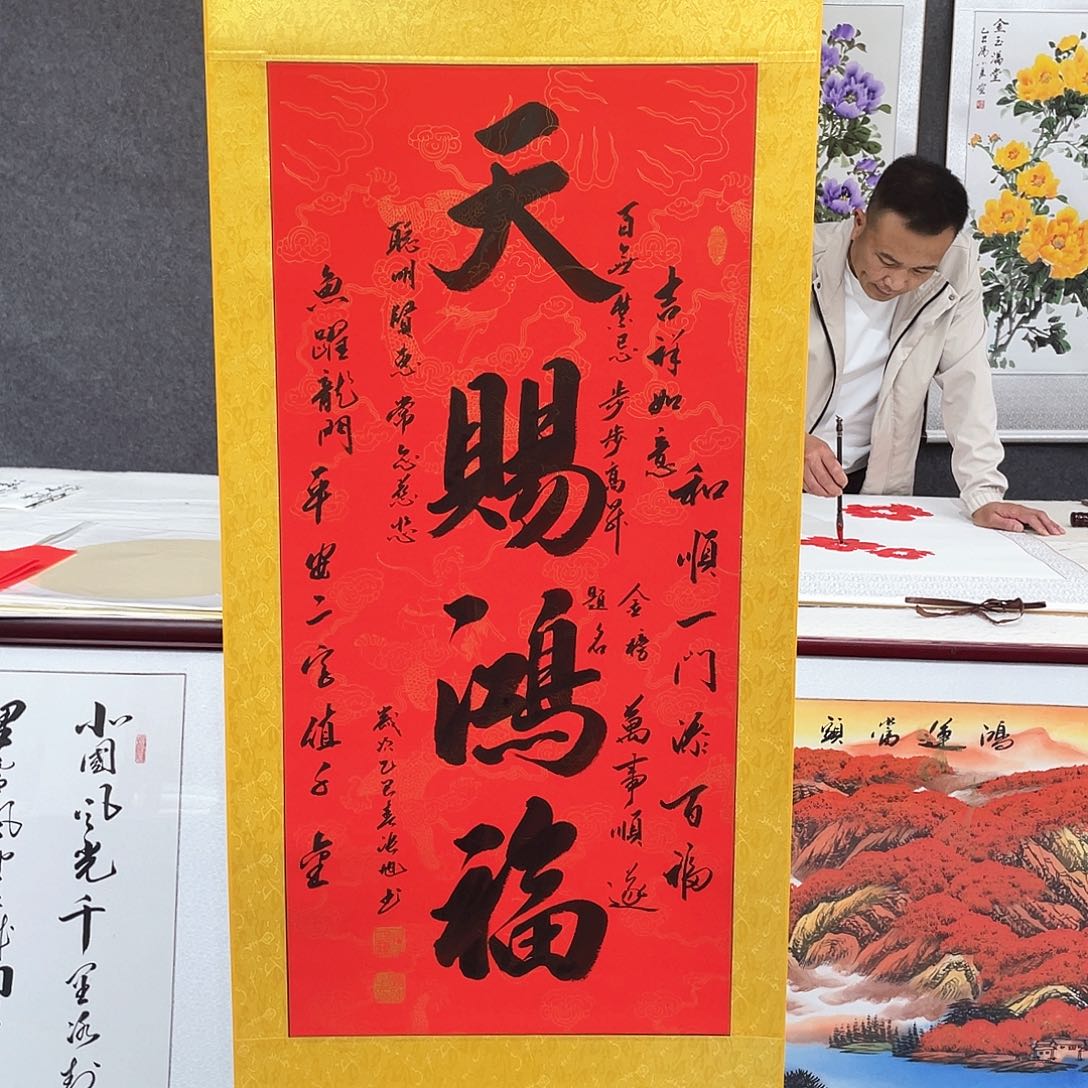 天賜鴻福
吉祥如意
和順一門添百福
百無禁忌
步步高昇
金榜
題名
萬事順遂
聰明賢惠
常念慈悲
魚躍龍門
平安二字值千金
歲次乙巳春
金玉滿堂
鴻運當頭
北國风光千里冰封